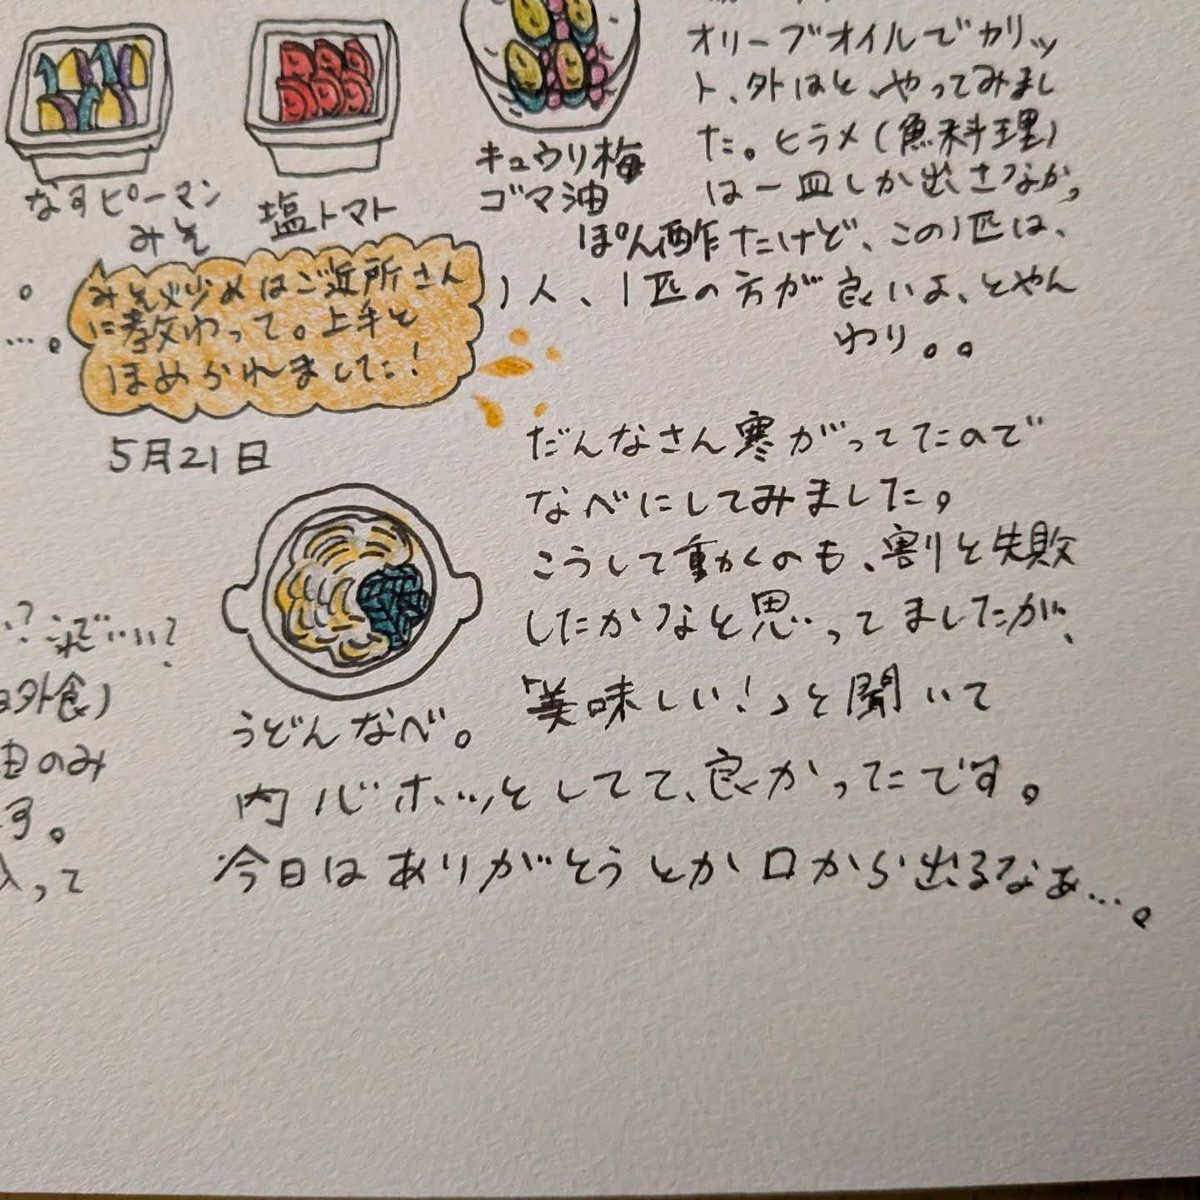 オリーブオイルでカリッ
ト、外はと、やってみまし
た。ヒラメ(魚料理)
は一皿しか出さなかっ
ぽん酢 たけど、この1匹は、
1人、1匹の方が良いよ、とやん
わり。。
なすピーマン
みそ
塩トマト
キュウリ梅
ゴマ油
みそ炒めはご近所さん
に教わって。上手と
ほめられました!
。
…。
5月21日
だんなさん寒がってたので
なべにしてみました。
こうして動くのも、割と失敗
したかなと思ってましたが、
「美味しい!」と聞いて
うどんなべ。
内心ホッとしてて、良かったです。
今日はありがとうとか口から出るなぁ…。
い?これでいい?
外食)
油のみ
ます。
入って